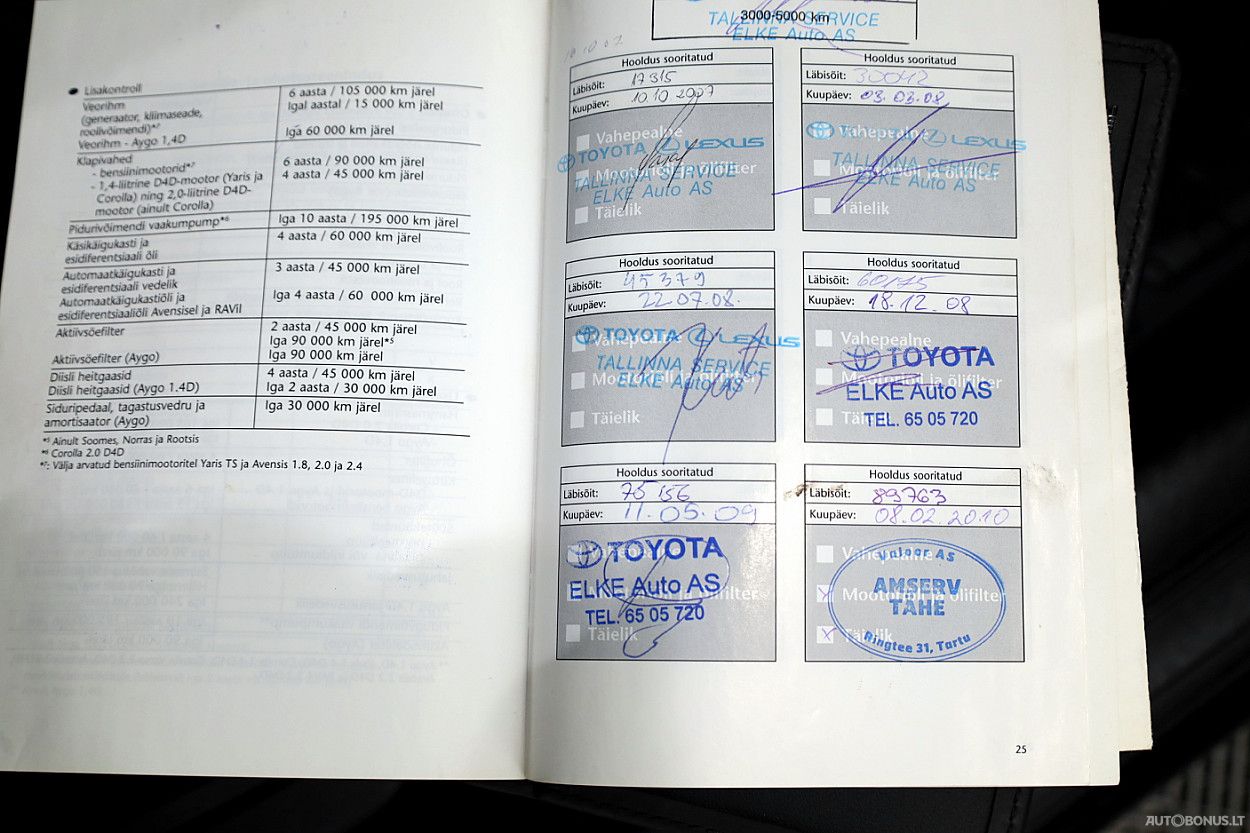 Lisakontroll
6 aasta / 105 000 km järel
Veorihm
Igal aastal / 15 000 km järel
(generaator, kliimaseade,
roolivõimendi)*7
Veorihm - Aygo 1,4D
Iga 60 000 km järel
Klapivahed
- bensiinimootorid*7
6 aasta / 90 000 km järel
- 1,4-liitrine D4D-mootor (Yaris ja
4 aasta / 45 000 km järel
Corolla) ning 2,0-liitrine D4D-
mootor (ainult Corolla)
Pidurivõimendi vaakumpump*6
Iga 10 aasta / 195 000 km järel
Käsikäigukasti ja
4 aasta / 60 000 km järel
esidiferentsiaali õli
Automaatkäigukasti ja
3 aasta / 45 000 km järel
esidiferentsiaali vedelik
Automaatkäigukastiõli ja
Iga 4 aasta / 60 000 km järel
esidiferentsiaaliõli Avensisel ja RAVil
Aktiivsöefilter
2 aasta / 45 000 km järel
Iga 90 000 km järel*5
Aktiivsöefilter (Aygo)
Iga 90 000 km järel
Diisli heitgaasid
4 aasta / 45 000 km järel
Diisli heitgaasid (Aygo 1.4D)
Iga 2 aasta / 30 000 km järel
Siduripedaal, tagastusvedru ja
Iga 30 000 km järel
amortisaator (Aygo)
*5 Ainult Soomes, Norras ja Rootsis
*6 Corolla 2.0 D4D
*7: Välja arvatud bensiinimootoritel Yaris TS ja Avensis 1.8, 2.0 ja 2.4
3000-5000 km
TALLINNA SERVICE
ELKE Auto AS
10.10.07
Hooldus sooritatud
Läbisõit: 17315
Kuupäev: 10.10.2007
Vahepealne
TOYOTA LEXUS
Mootoriõli ja õlifilter
TALLINNA SERVICE
ELKE Auto AS
Täielik
Hooldus sooritatud
Läbisõit: 30042
Kuupäev: 03.03.08.
Vahepealne
LEXUS
Mootoriõli ja õlifilter
TALLINNA SERVICE
ELKE Auto AS
Täielik
Hooldus sooritatud
Läbisõit: 45379
Kuupäev: 22.07.08.
Vahepealne
TOYOTA LEXUS
TALLINNA SERVICE
Mootoriõli ja õlifilter
ELKE Auto AS
Täielik
Hooldus sooritatud
Läbisõit: 60175
Kuupäev: 18.12.08
Vahepealne
TOYOTA
Mootoriõli ja õlifilter
ELKE Auto AS
Täielik
TEL. 65 05 720
Hooldus sooritatud
Läbisõit: 75156
Kuupäev: 11.05.09
Vahepealne
TOYOTA
ELKE Auto AS
Mootoriõli ja õlifilter
TEL. 65 05 720
Täielik
Hooldus sooritatud
Läbisõit: 89763
Kuupäev: 08.02.2010
Vahepealne
AS
AMSERV
Mootoriõli ja õlifilter
TÄHE
Täielik
Ringtee 31, Tartu
25
AUTOBONUS.LT